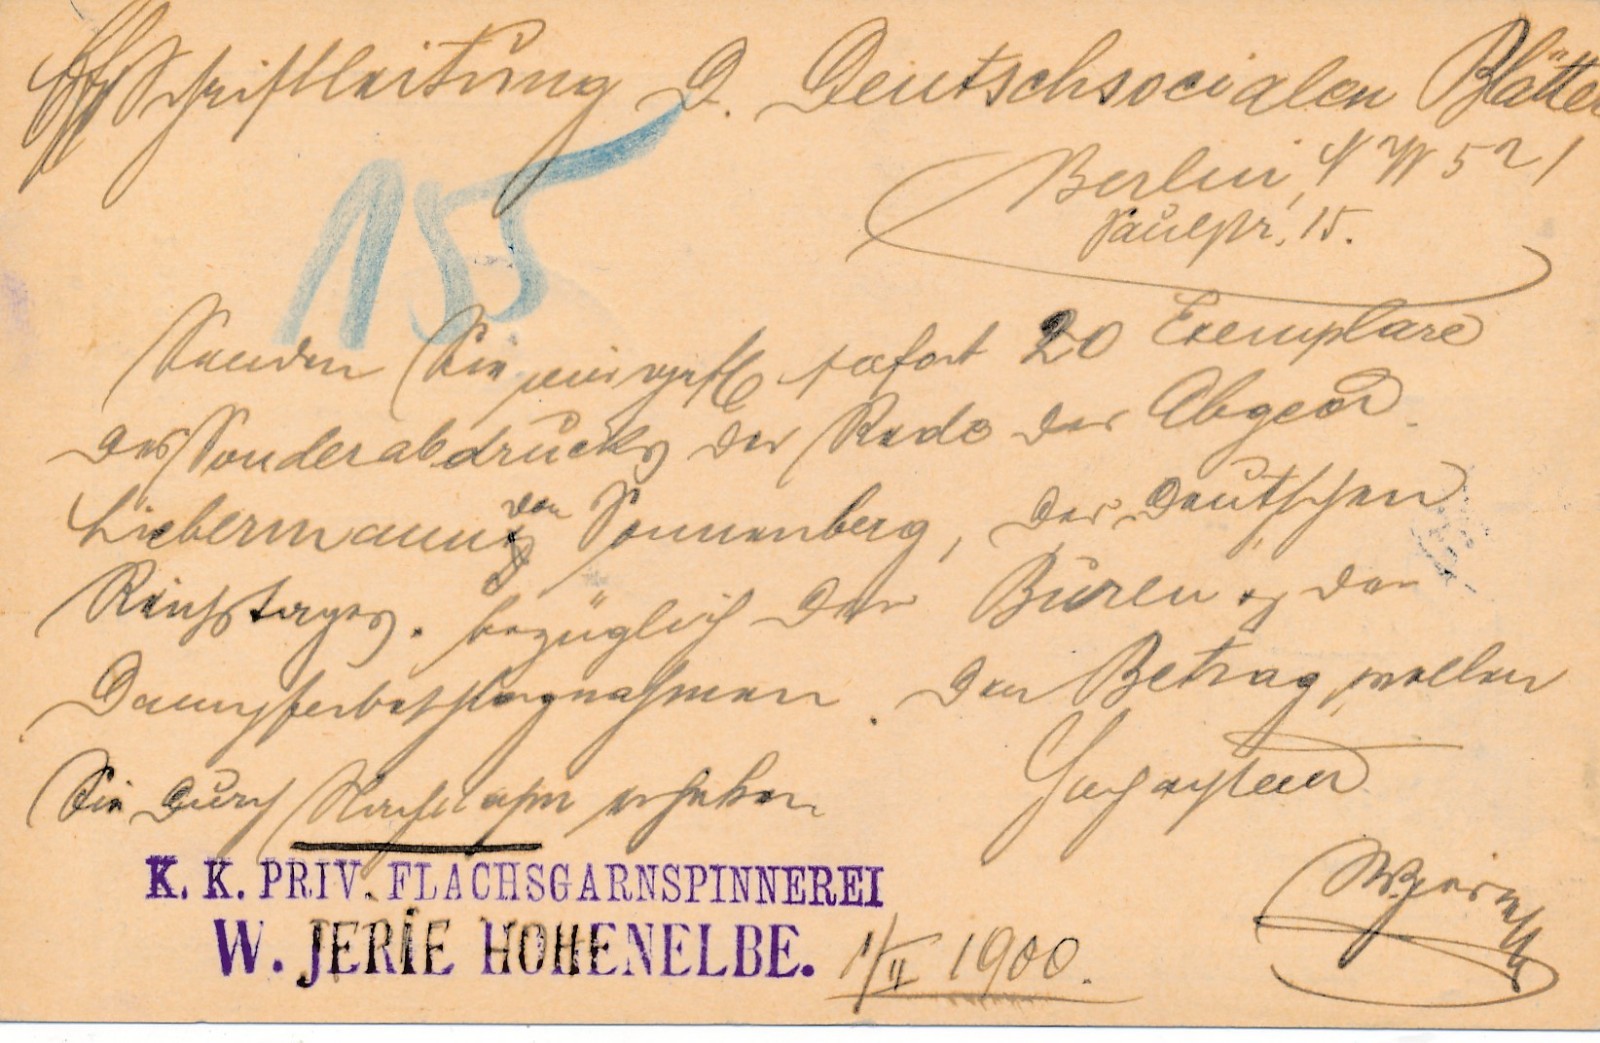 Schriftleitung d. Deutschsocialen Blätter
Berlin, N W 52 /
Paulstr. 15.
155
Senden Sie mir gefl. sofort 20 Exemplare
des Sonderabdrucks der Rede des Abgeord.
Liebermann von Sonnenberg, des deutschen
Reichstages. bezüglich der Buren & der
Dampferbeschlagnahmen. Den Betrag wollen
Sie durch Nachnahme erheben
Hochachtend
K. K. PRIV. FLACHSGARNSPINNEREI
W. JERIE HOHENELBE.
1/II 1900.